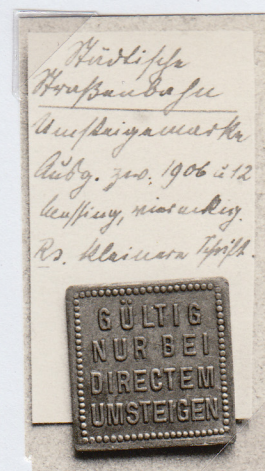 Städtische
Straßenbahn
Umsteigemarke
Ausg. zw. 1906 u 12
Messing, viereckig.
Rs. kleinere Schrift.
GÜLTIG
NUR BEI
DIRECTEM
UMSTEIGEN